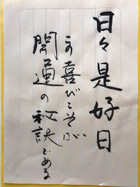 日々是好日
の喜びこそが
開運の秘訣である